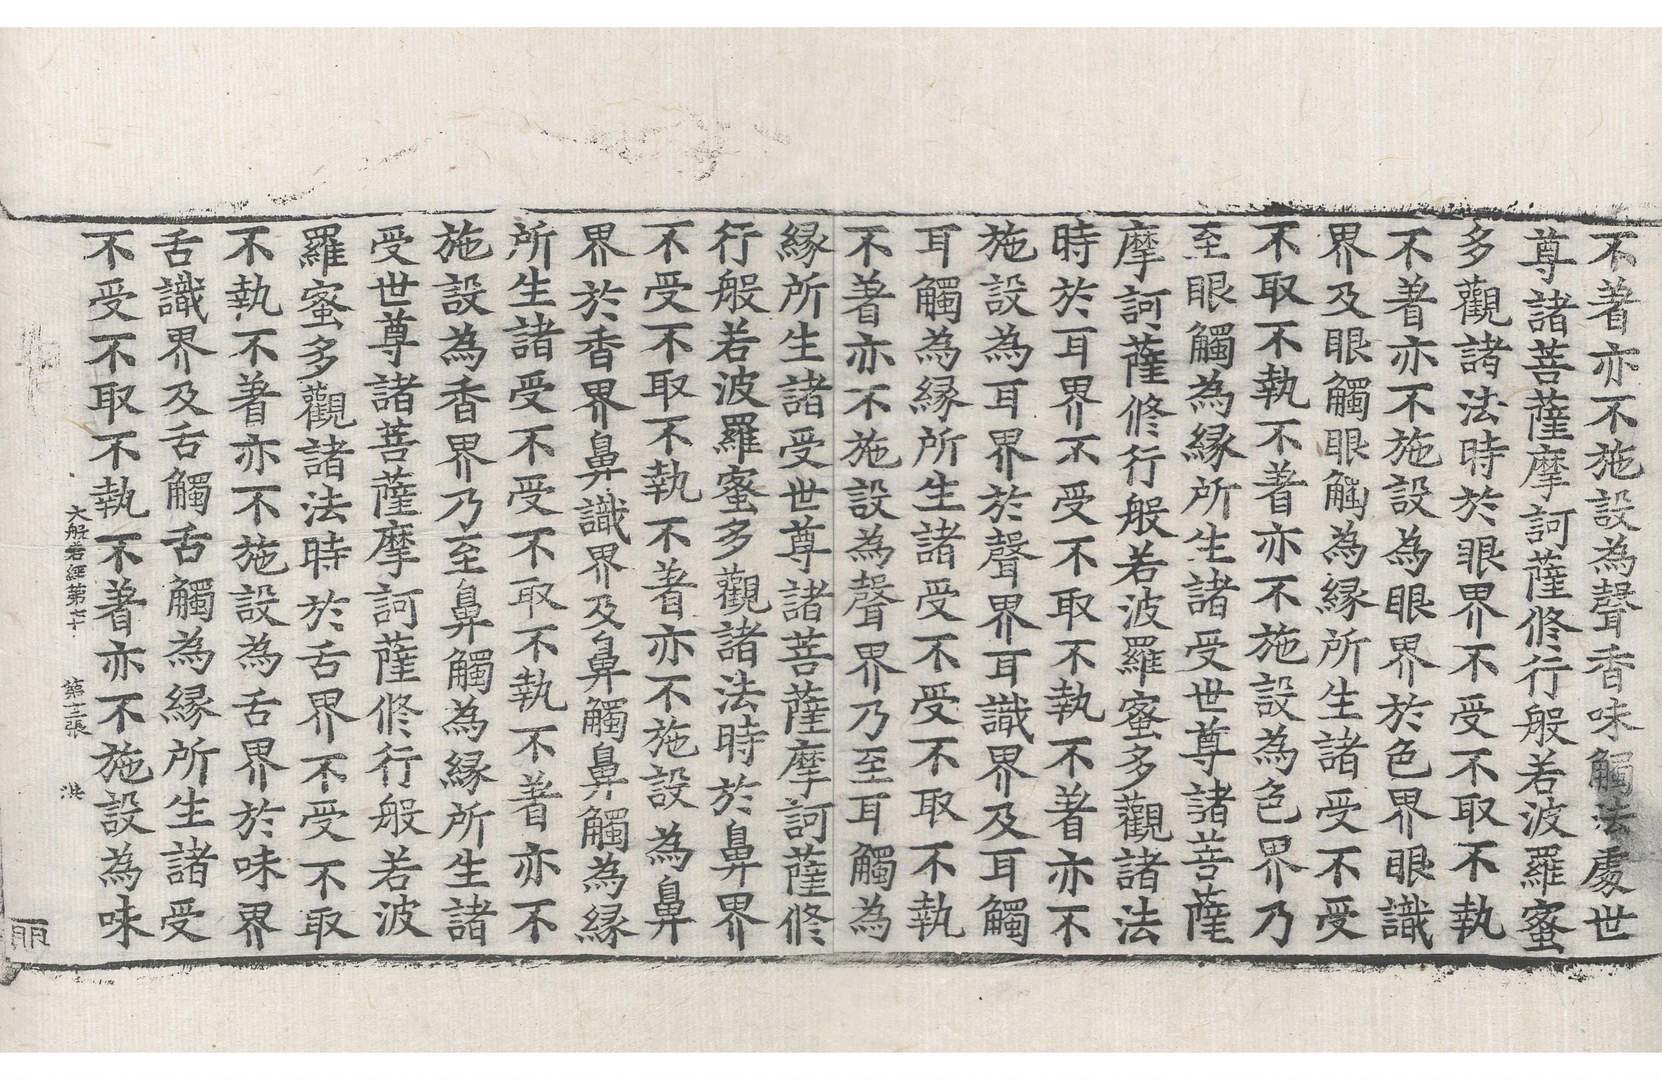 不著亦不施設為聲香味觸法處世
尊諸菩薩摩訶薩修行般若波羅蜜
多觀諸法時於眼界不受不取不執
不著亦不施設為眼界於色界眼識
界及眼觸眼觸為緣所生諸受不受
不取不執不著亦不施設為色界乃
至眼觸為緣所生諸受世尊諸菩薩
摩訶薩修行般若波羅蜜多觀諸法
時於耳界不受不取不執不著亦不
施設為耳界於聲界耳識界及耳觸
耳觸為緣所生諸受不受不取不執
不著亦不施設為聲界乃至耳觸為
緣所生諸受世尊諸菩薩摩訶薩修
行般若波羅蜜多觀諸法時於鼻界
不受不取不執不著亦不施設為鼻
界於香界鼻識界及鼻觸鼻觸為緣
所生諸受不受不取不執不著亦不
施設為香界乃至鼻觸為緣所生諸
受世尊諸菩薩摩訶薩修行般若波
羅蜜多觀諸法時於舌界不受不取
不執不著亦不施設為舌界於味界
舌識界及舌觸舌觸為緣所生諸受
不受不取不執不著亦不施設為味
大般若經第七十 第十三張 洪